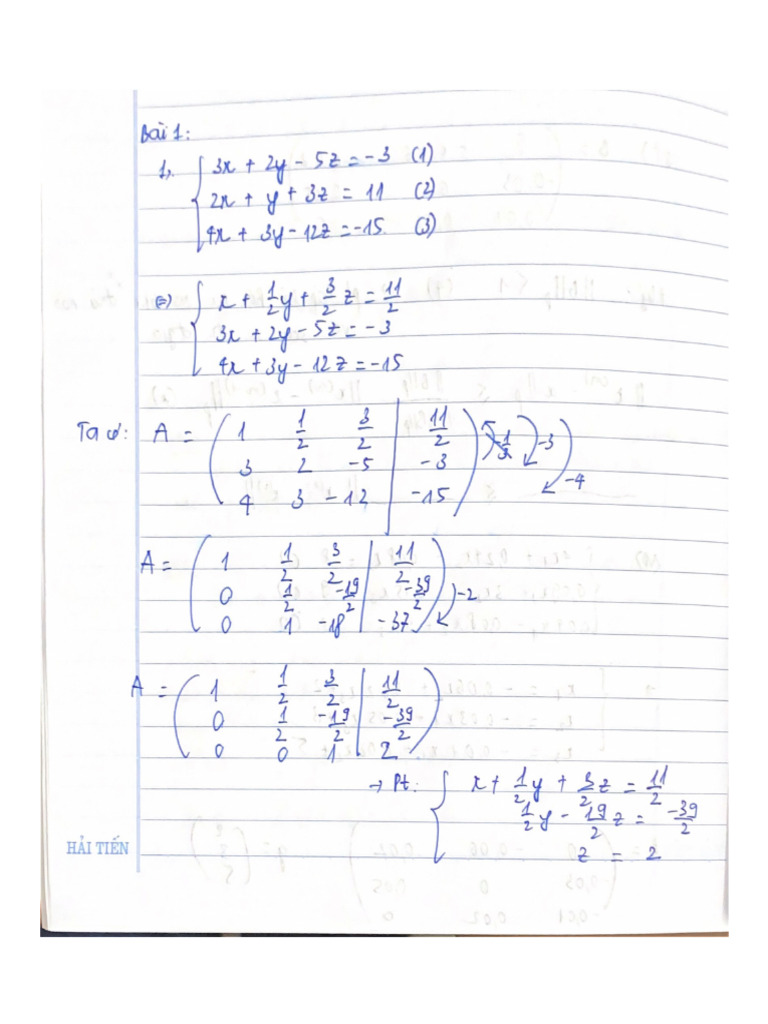 Bài 1:
1, { 3x + 2y - 5z = -3 (1)
2x + y + 3z = 11 (2)
4x + 3y - 12z = -15 (3)
⇔ { x + 1/2 y + 3/2 z = 11/2
3x + 2y - 5z = -3
4x + 3y - 12z = -15
Ta có: A = ( 1 1/2 3/2 | 11/2 ) -3 -4
3 2 -5 | -3
4 3 -12 | -15
A = ( 1 1/2 3/2 | 11/2 )
0 1/2 -19/2 | -39/2 -2
0 1 -18 | -37
A = ( 1 1/2 3/2 | 11/2 )
0 1/2 -19/2 | -39/2
0 0 1 | 2
→ Pt: { x + 1/2 y + 3/2 z = 11/2
1/2 y - 19/2 z = -39/2
z = 2
HẢI TIẾN